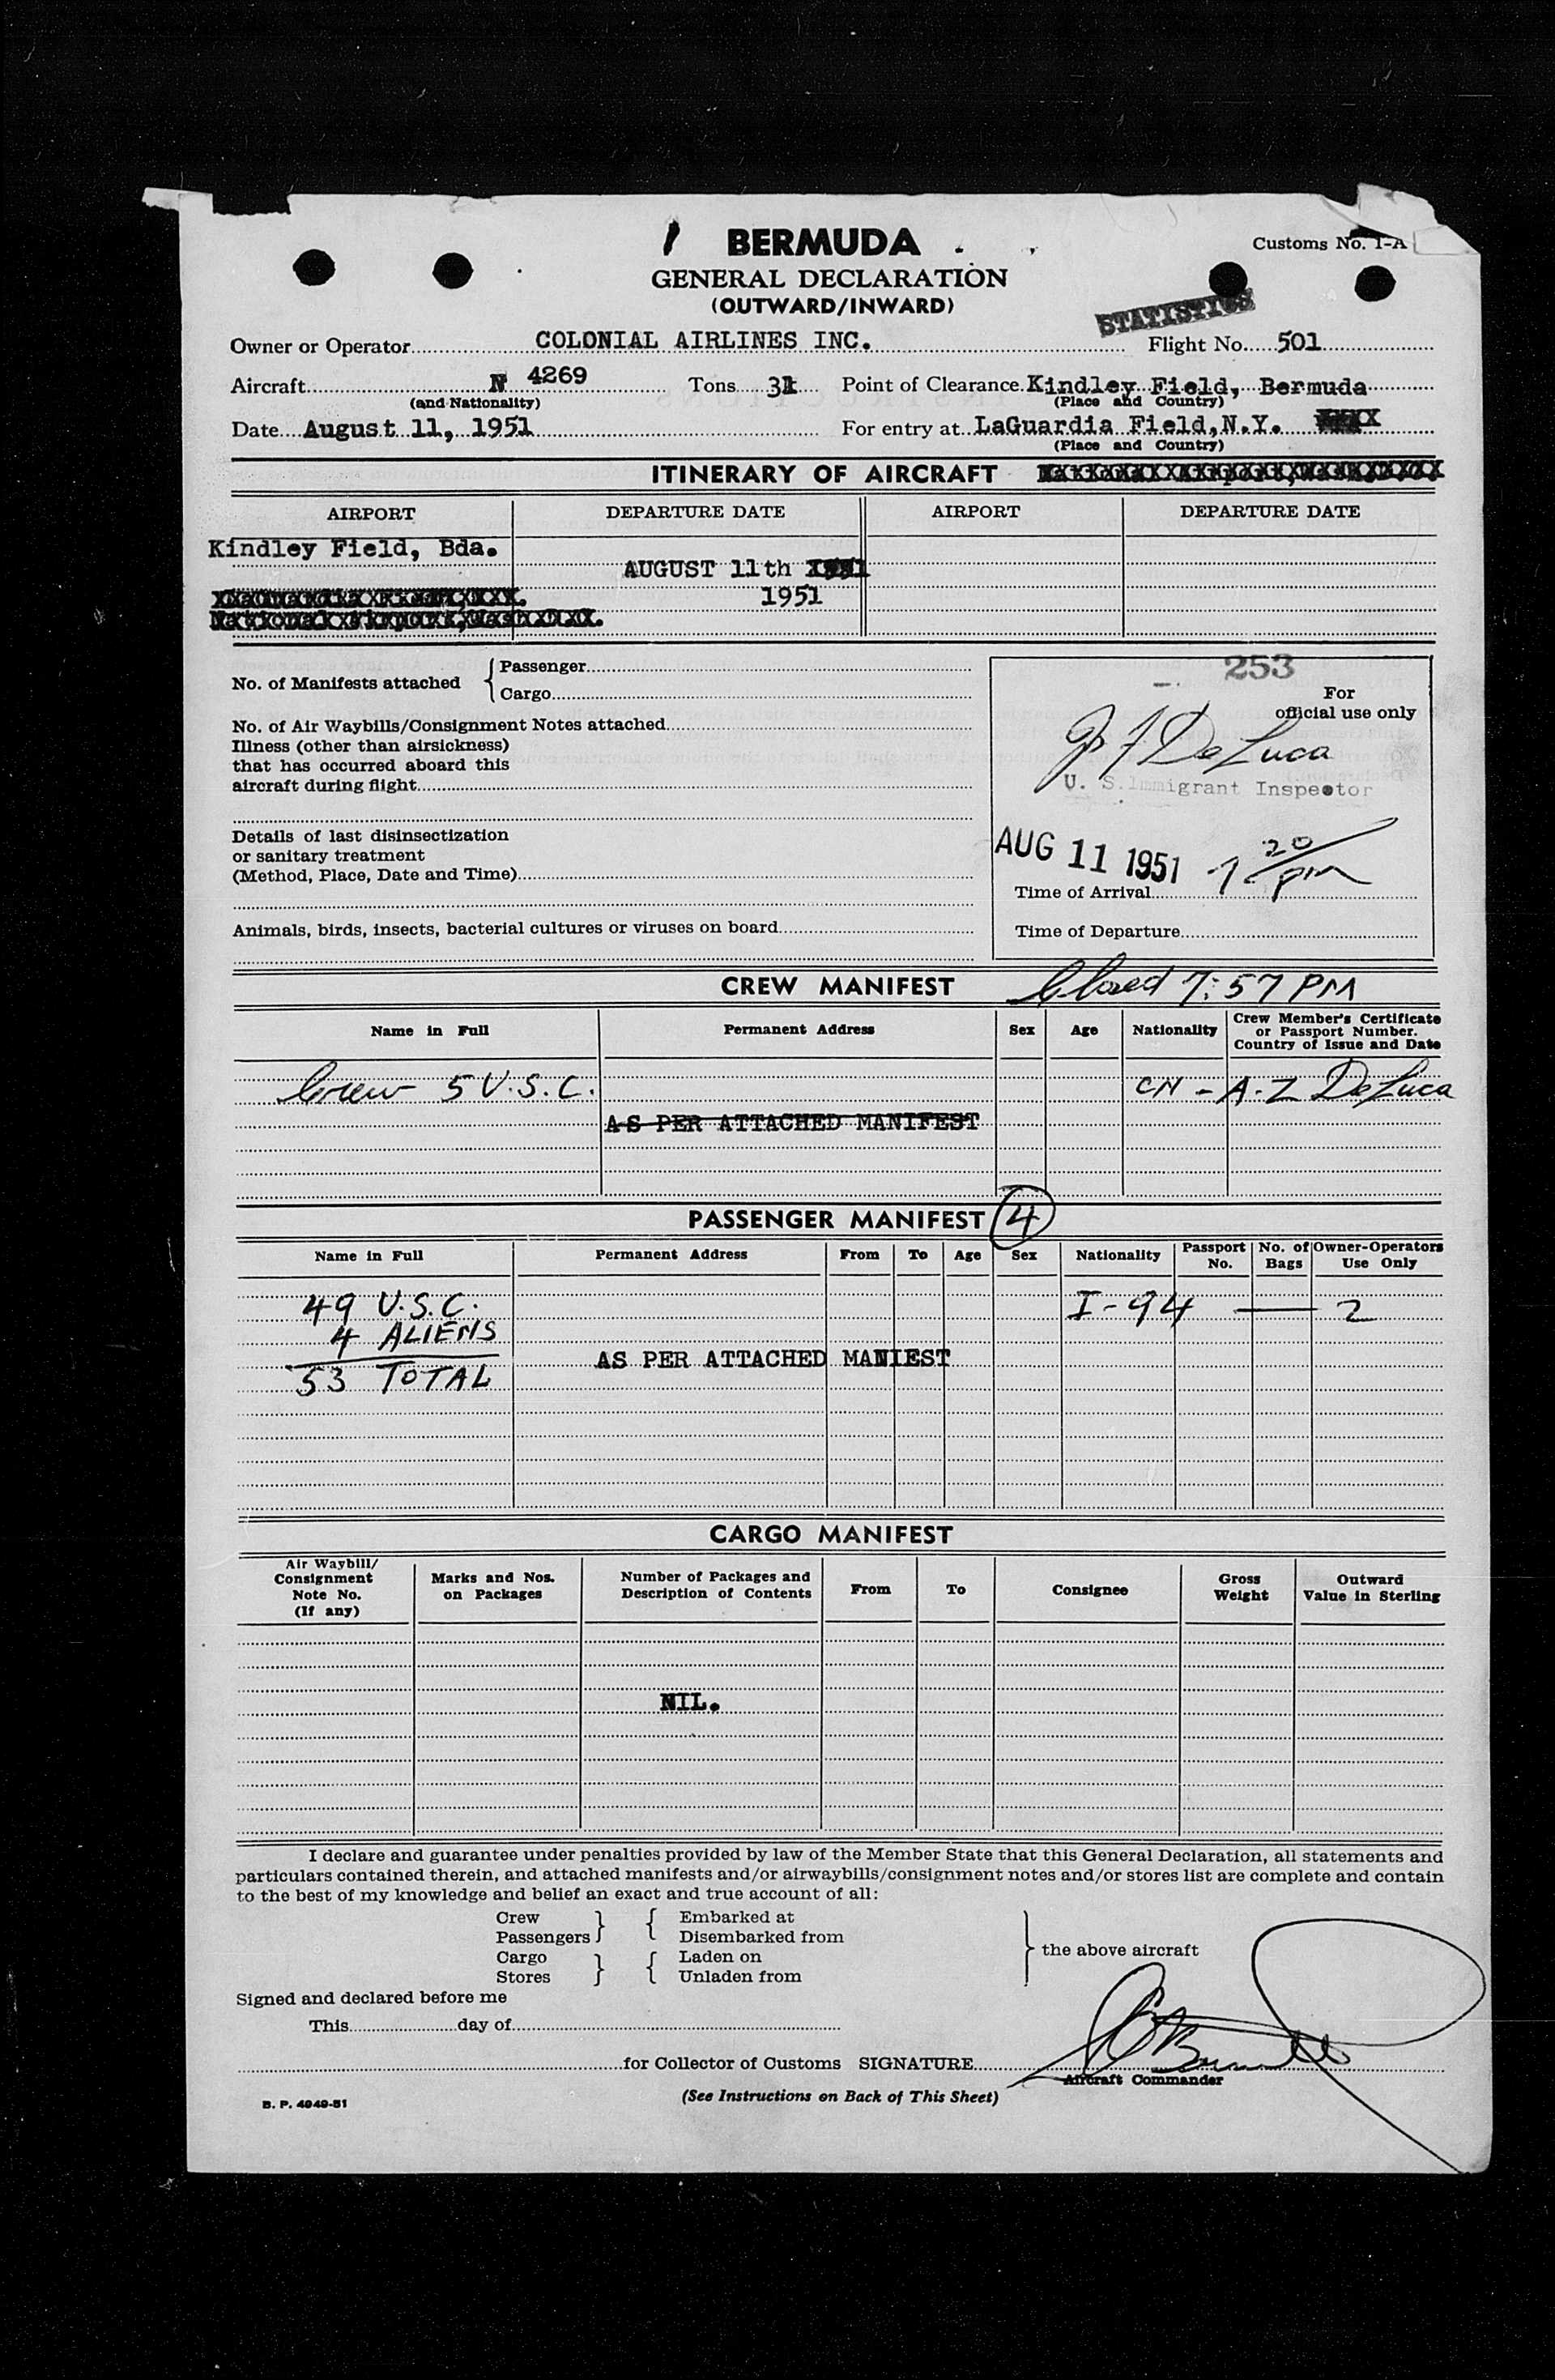 BERMUDA
Customs No. 1-A
GENERAL DECLARATION
(OUTWARD/INWARD)
STATISTICS
Owner or Operator COLONIAL AIRLINES INC. Flight No. 501
Aircraft N 4269 Tons Point of Clearance Kindley Field, Bermuda
(and Nationality) (Place and Country)
Date August 11, 1951 For entry at LaGuardia Field, N.Y.
(Place and Country)
ITINERARY OF AIRCRAFT
AIRPORT DEPARTURE DATE AIRPORT DEPARTURE DATE
Kindley Field, Bda.
AUGUST 11th
1951
No. of Manifests attached { Passenger
Cargo
No. of Air Waybills/Consignment Notes attached
Illness (other than airsickness)
that has occurred aboard this
aircraft during flight
Details of last disinsectization
or sanitary treatment
(Method, Place, Date and Time)
Animals, birds, insects, bacterial cultures or viruses on board
253
For
official use only
De Luca
U. S. Immigrant Inspector
AUG 11 1951 7 20 pm
Time of Arrival
Time of Departure
CREW MANIFEST Closed 7:57 PM
Name in Full Permanent Address Sex Age Nationality Crew Member's Certificate
or Passport Number.
Country of Issue and Date
Crew 5 U.S.C. CN - A-Z De Luca
AS PER ATTACHED MANIFEST
PASSENGER MANIFEST 4
Name in Full Permanent Address From To Age Sex Nationality Passport No. No. of Bags Owner-Operators Use Only
49 U.S.C. I-94 — 2
4 ALIENS
AS PER ATTACHED MANIEST
53 TOTAL
CARGO MANIFEST
Air Waybill/
Consignment
Note No.
(If any)
Marks and Nos.
on Packages
Number of Packages and
Description of Contents
From To Consignee
Gross
Weight
Outward
Value in Sterling
NIL.
I declare and guarantee under penalties provided by law of the Member State that this General Declaration, all statements and
particulars contained therein, and attached manifests and/or airwaybills/consignment notes and/or stores list are complete and contain
to the best of my knowledge and belief an exact and true account of all:
Crew } { Embarked at
Passengers Disembarked from
Cargo } { Laden on } the above aircraft
Stores Unladen from
Signed and declared before me
This day of
for Collector of Customs SIGNATURE
Aircraft Commander
(See Instructions on Back of This Sheet)
B. P. 4949-51